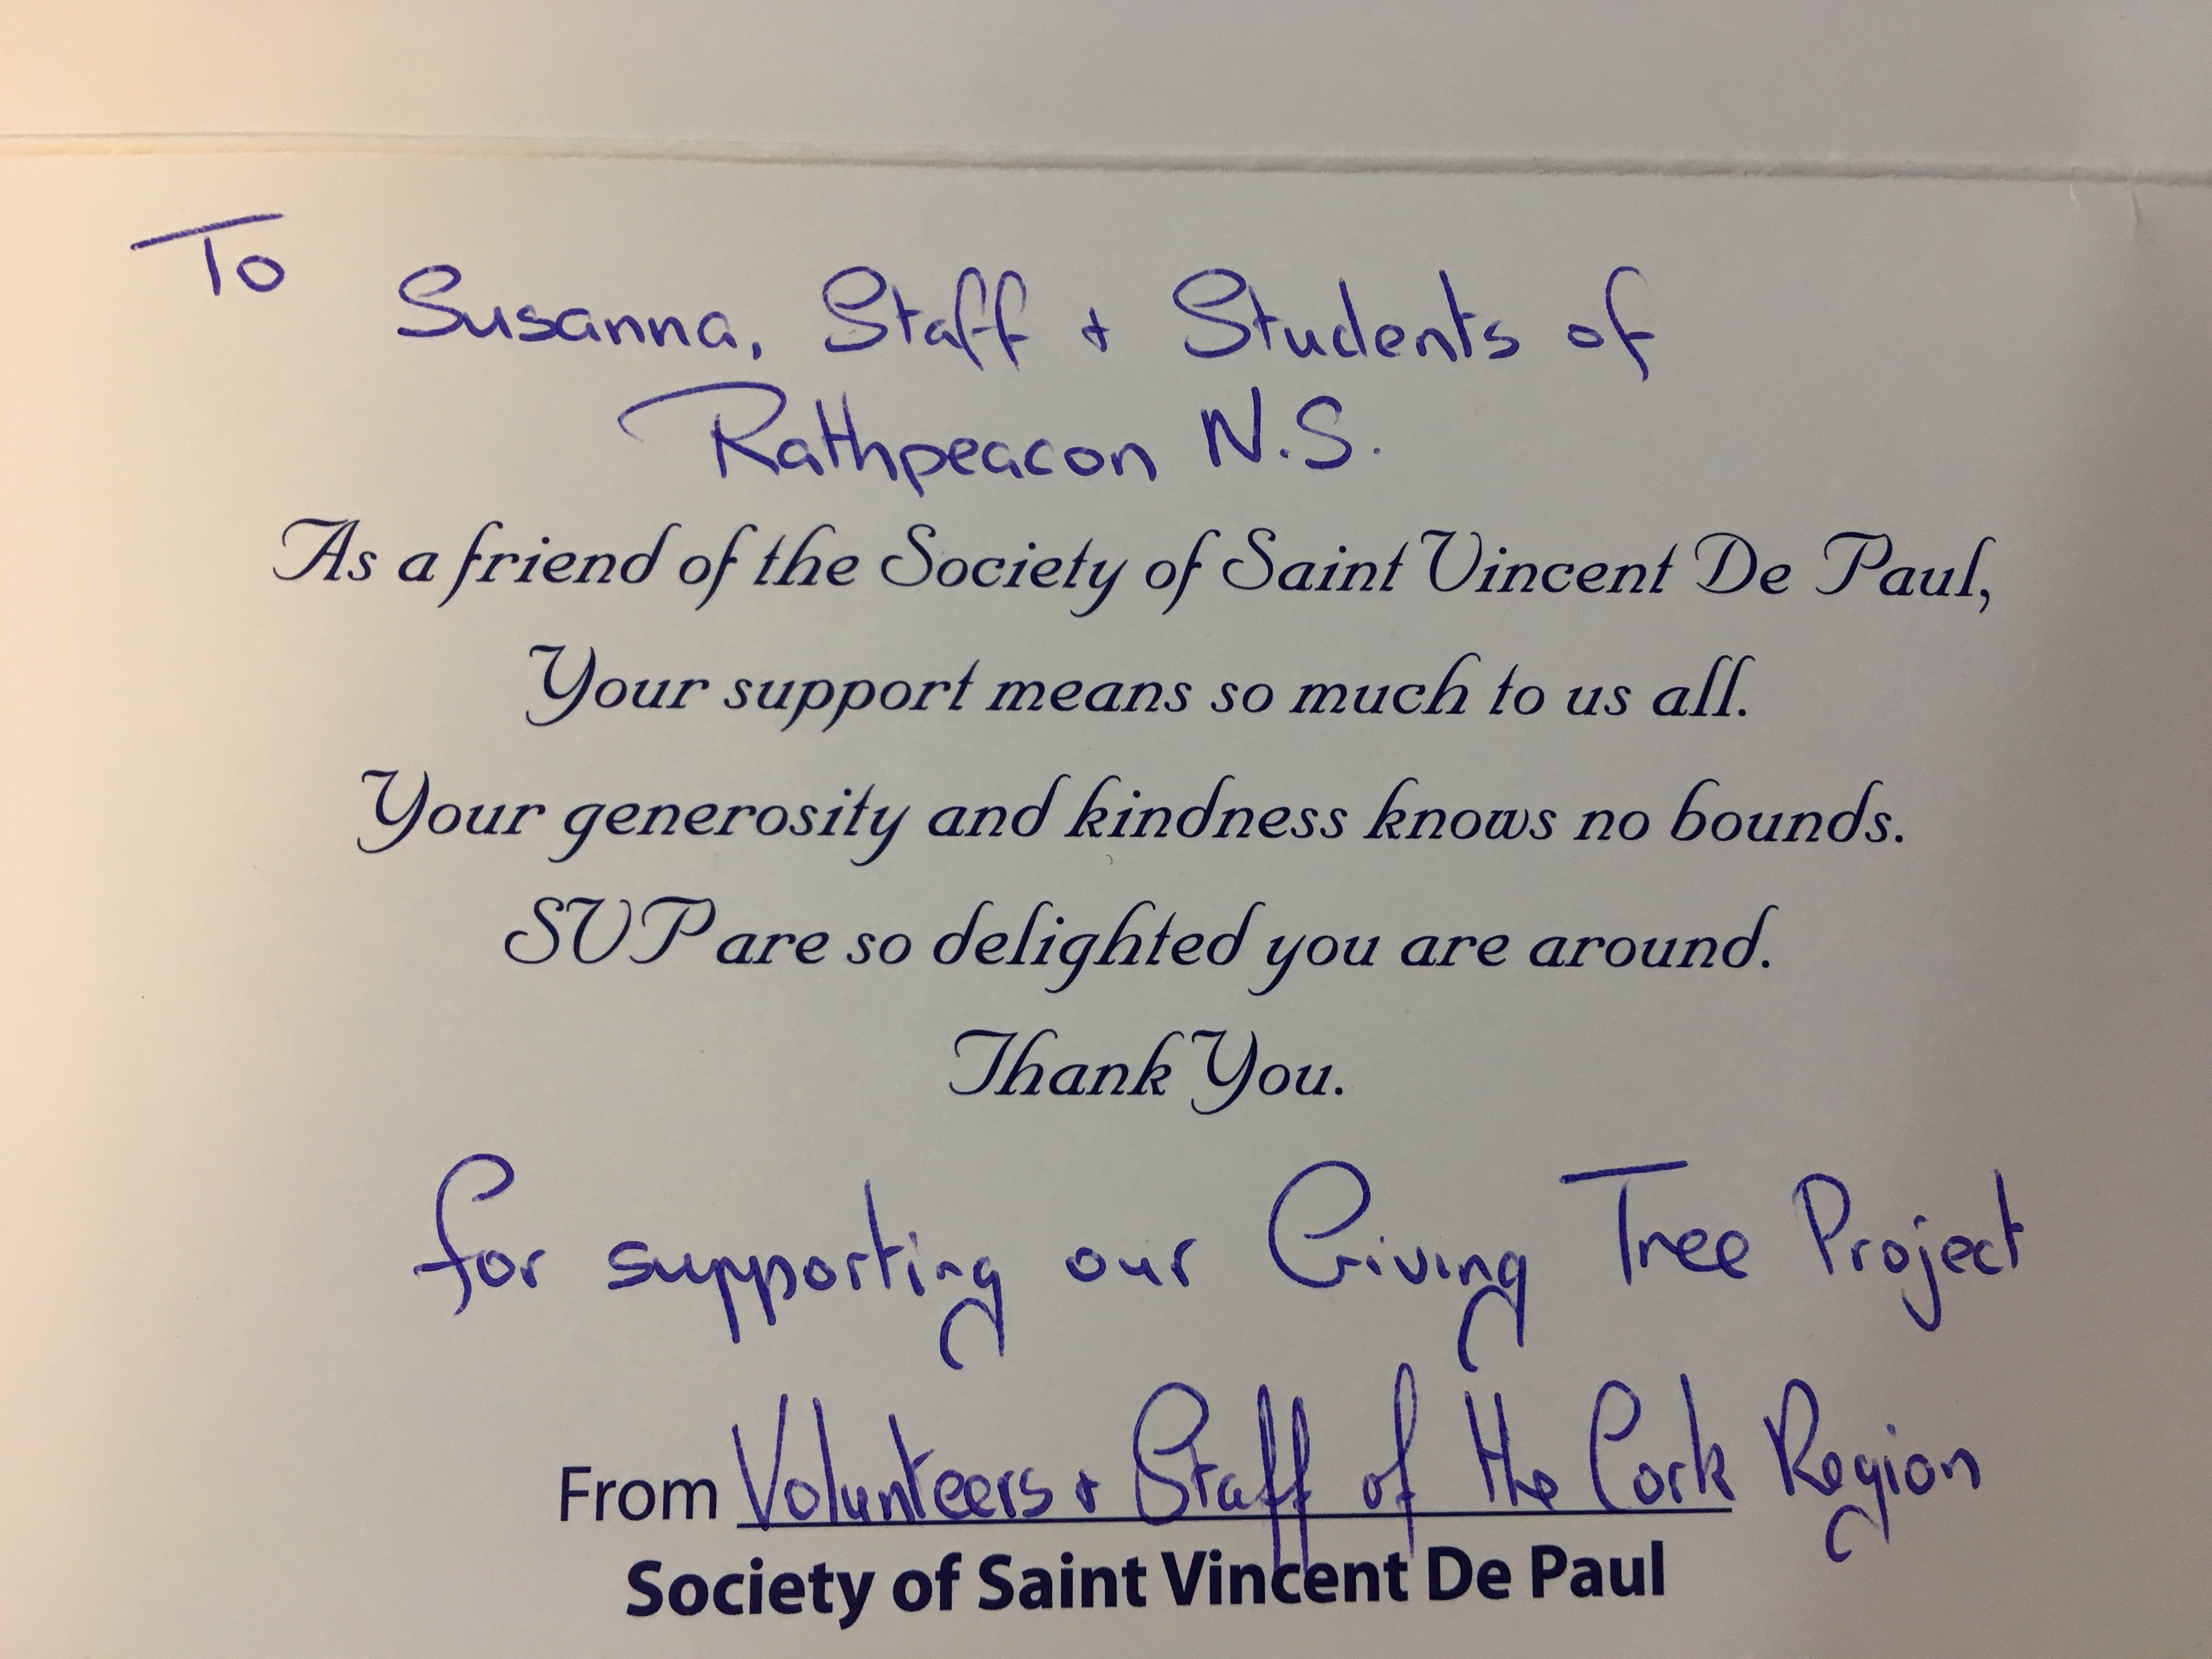 To
Susanna, Staff + Students of
Rathpeacon N.S.
As a friend of the Society of Saint Vincent De Paul,
Your support means so much to us all.
Your generosity and kindness knows no bounds.
SVP are so delighted you are around.
Thank You.
for supporting our Giving Tree Project
From Volunteers + Staff of the Cork Region
Society of Saint Vincent De Paul